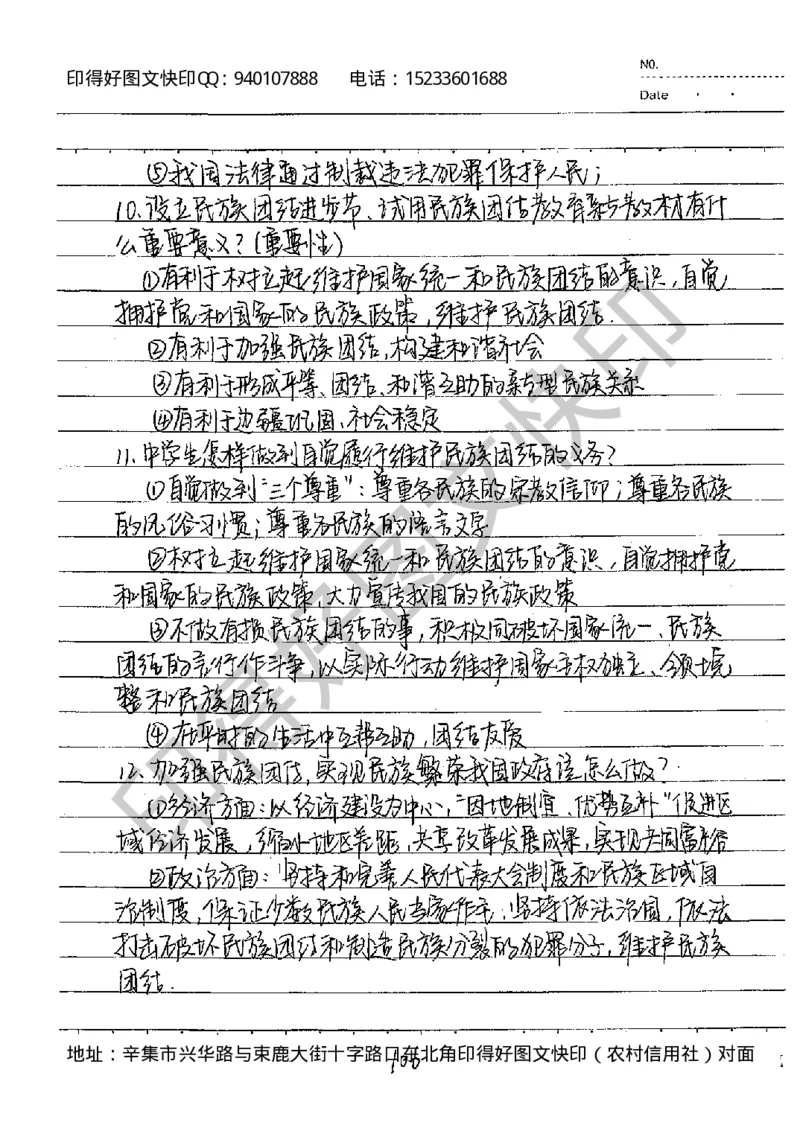 印得好图文快印QQ：940107888 电话：15233601688
NO.
Date
⑤我国法律通过制裁违法犯罪保护人民；
10.设立民族团结进步节、试用民族团结教育系列教材有什
么重要意义？（重要性）
①有利于树立起维护国家统一和民族团结的意识，自觉
拥护党和国家的民族政策，维护民族团结.
②有利于加强民族团结，构建和谐社会
③有利于形成平等、团结、和谐互助的新型民族关系
④有利于边疆巩固、社会稳定
11.中学生怎样做到自觉履行维护民族团结的义务？
①自觉做到“三个尊重”：尊重各民族的宗教信仰；尊重各民族
的风俗习惯；尊重各民族的语言文字
②树立起维护国家统一和民族团结的意识，自觉拥护党
和国家的民族政策，大力宣传我国的民族政策
③不做有损民族团结的事，积极同破坏国家统一、民族
团结的言行作斗争，以实际行动维护国家主权独立、领土完
整和民族团结
④在平时的生活中互帮互助，团结友爱
12.加强民族团结，实现民族繁荣我国政府该怎么做？
①经济方面：以经济建设为中心，“因地制宜、优势互补”促进区
域经济发展，缩小地区差距，共享改革发展成果，实现共同富裕
②政治方面：坚持和完善人民代表大会制度和民族区域自
治制度，保证少数民族人民当家作主，坚持依法治国，依法
打击破坏民族团结和制造民族分裂的犯罪分子，维护民族
团结.
地址：辛集市兴华路与束鹿大街十字路口东北角印得好图文快印（农村信用社）对面
印得好图文快印